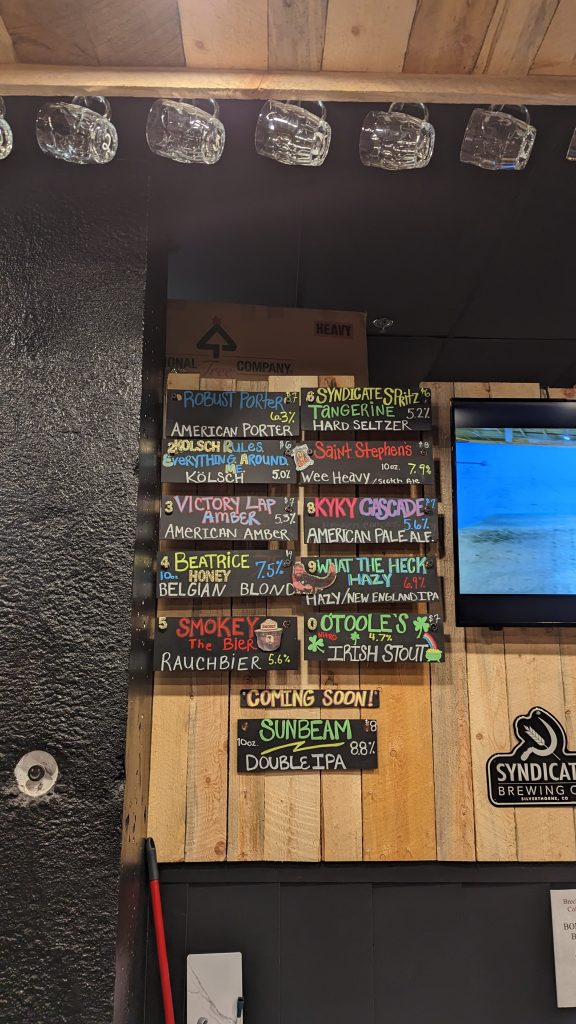 HEAVY
IONAL Tree COMPANY
ROBUST PORTER $7
6.3%
AMERICAN PORTER
2 KÖLSCH RULES $6
EVERYTHING AROUND
ME
KÖLSCH 5.0%
3 VICTORY LAP $7
AMBER 5.3%
AMERICAN AMBER
4 BEATRICE
10oz HONEY 7.5%
BELGIAN BLOND
5 SMOKEY
The Bier
RAUCHBIER 5.6%
6 SYNDICATE SPRITZ $6
TANGERINE 5.2%
HARD SELTZER
SAINT STEPHENS $8
10oz. 7.9%
WEE HEAVY/Scotch Ale
8 KYKY CASCADE $7
5.6%
AMERICAN PALE ALE
9 WHAT THE HECK
HAZY 6.9%
HAZY/NEW ENGLAND IPA
0 OTOOLE'S $7
NITRO 4.7%
IRISH STOUT
COMING SOON!
SUNBEAM $8
10oz. 8.8%
DOUBLE IPA
SYNDICAT
BREWING C
SILVERTHORNE, CO